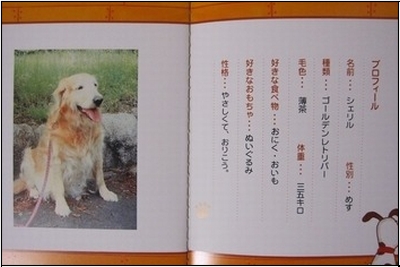 プロフィール
名前・・・シェリル　性別・・・めす
種類・・・ゴールデンレトリバー
毛色・・・薄茶　体重・・・三五キロ
好きな食べ物・・・おにく・おいも
好きなおもちゃ・・・ぬいぐるみ
性格・・・やさしくて、おりこう。